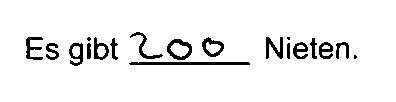 Es gibt 200 Nieten.